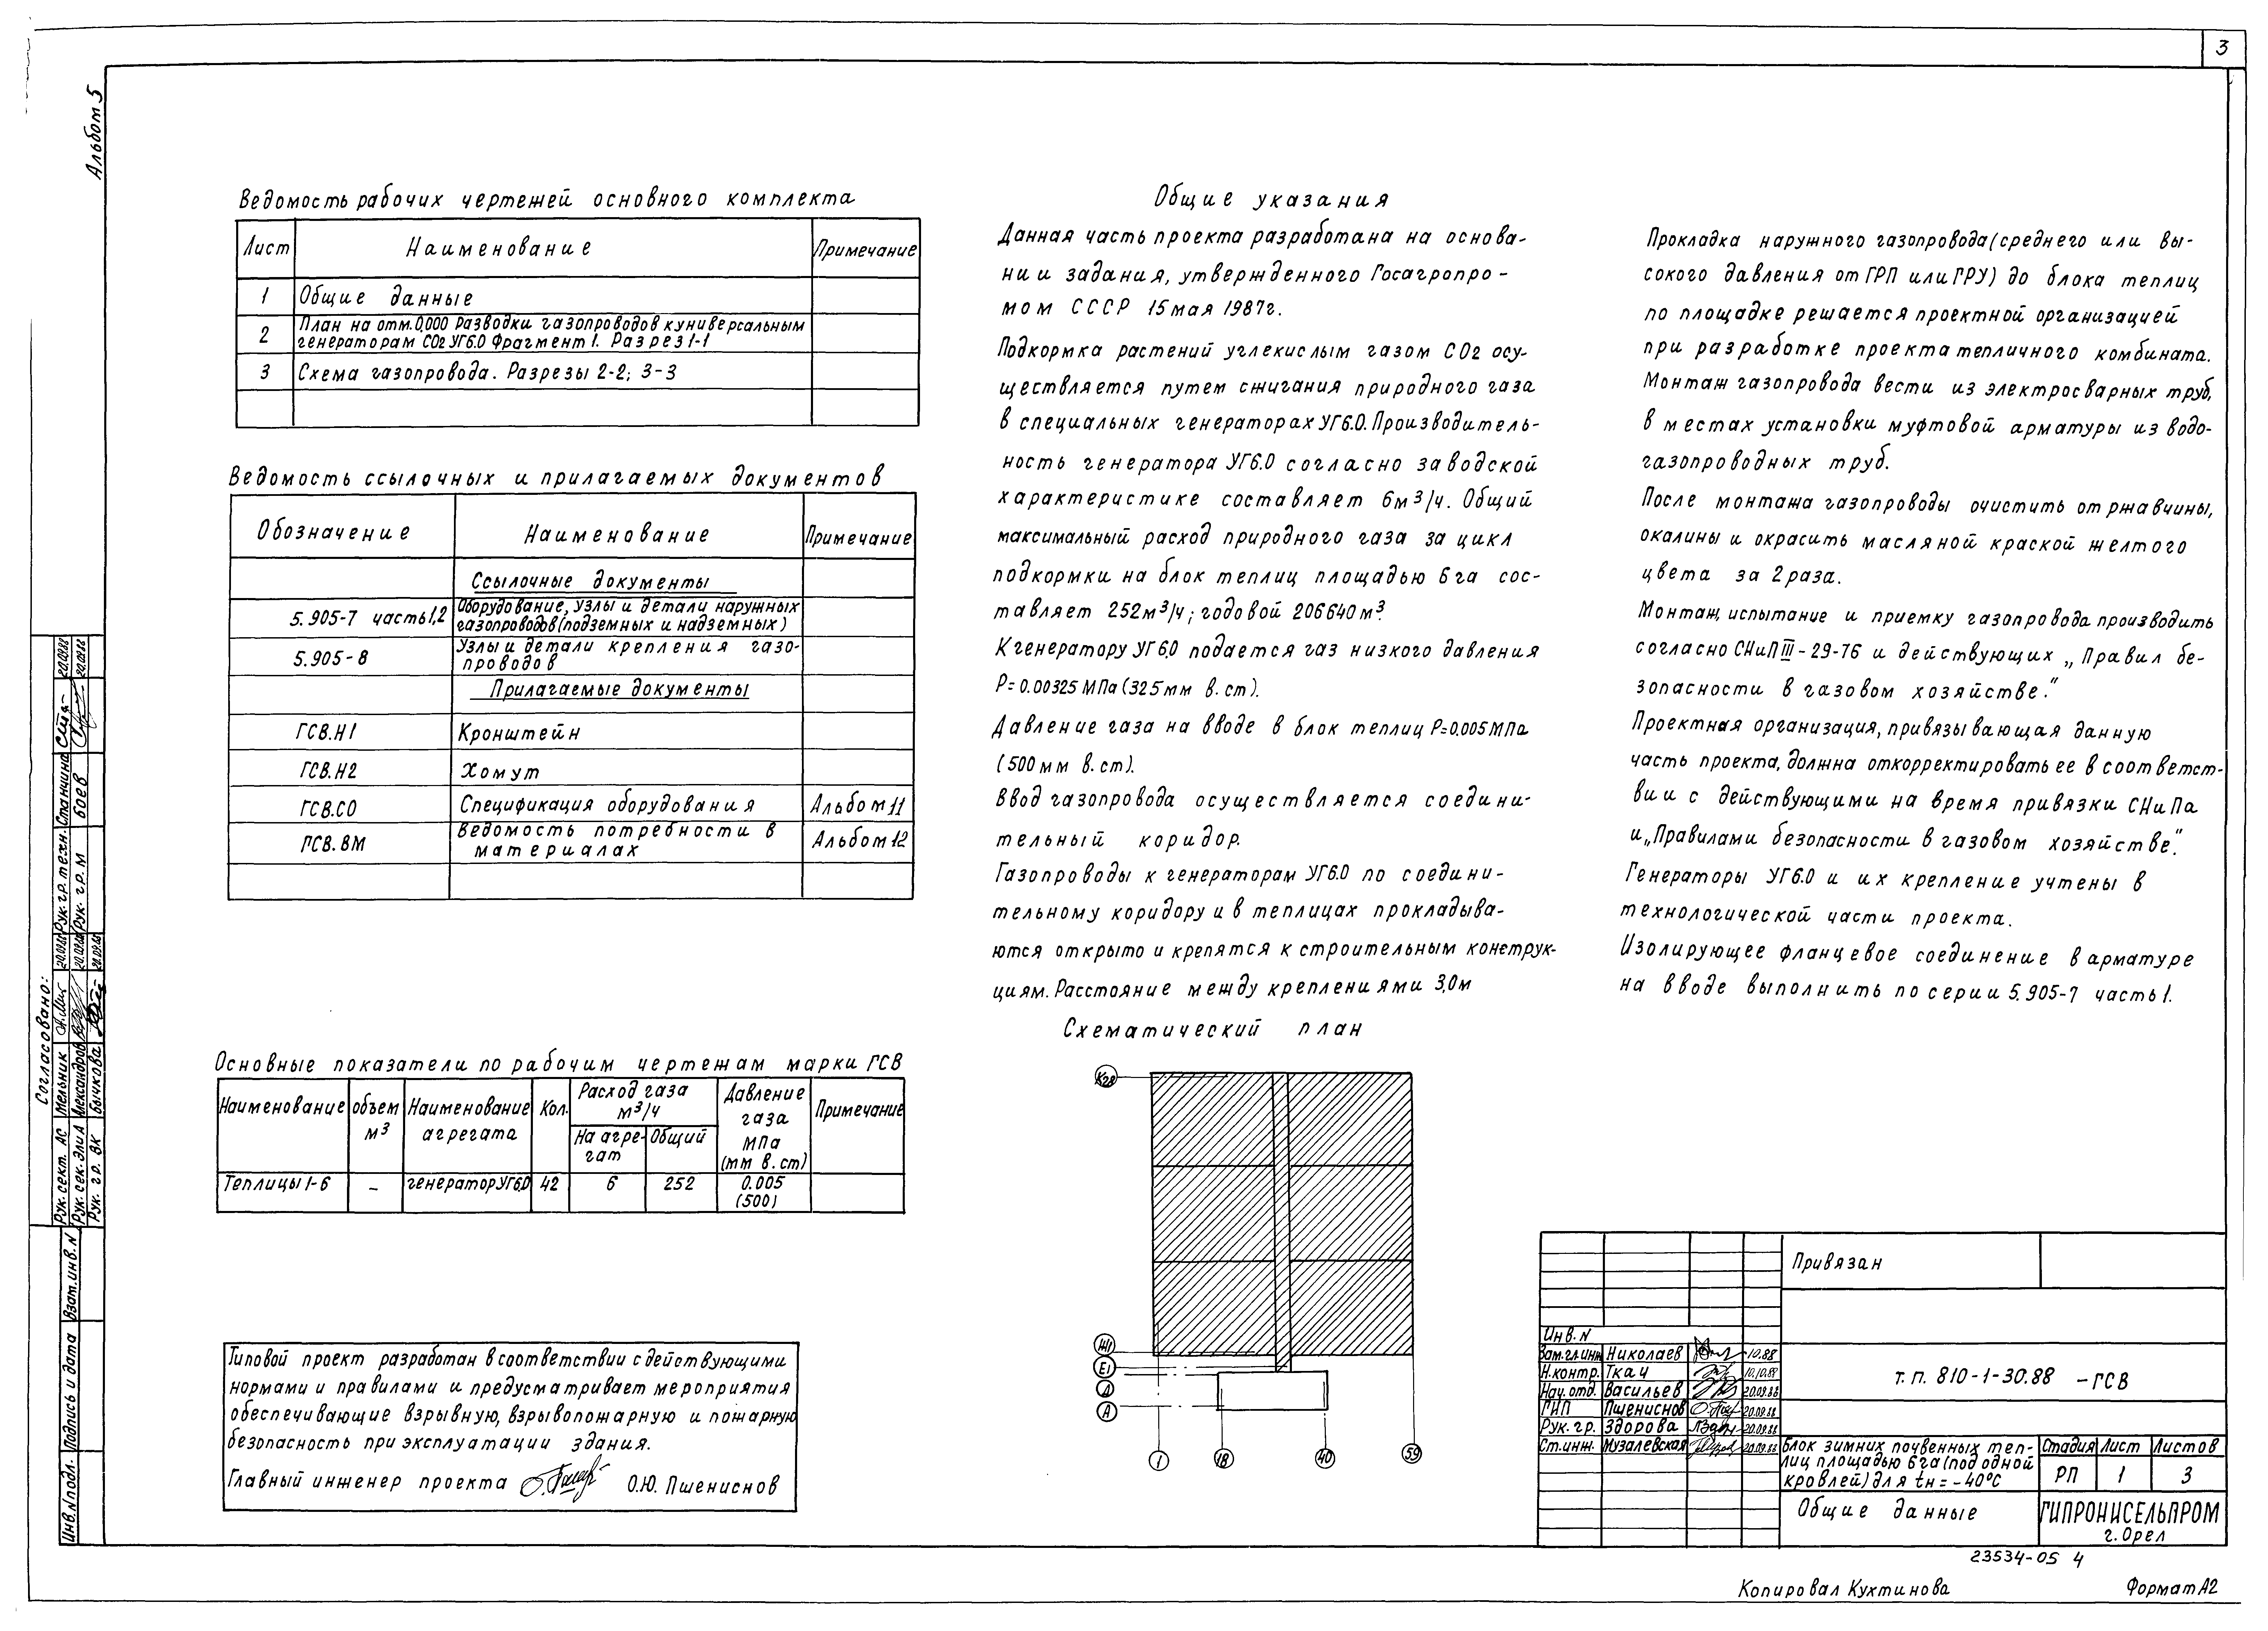 3
Альбом 5
Ведомость рабочих чертежей основного комплекта
Лист Наименование Примечание
1 Общие данные
2 План на отм. 0,000 Разводки газопроводов к универсальным
генераторам CO2 УГ6.0 Фрагмент 1. Разрез 1-1
3 Схема газопровода. Разрезы 2-2; 3-3
Ведомость ссылочных и прилагаемых документов
Обозначение Наименование Примечание
Ссылочные документы
5.905-7 часть 1,2 Оборудование, узлы и детали наружных
газопроводов (подземных и надземных)
5.905-8 Узлы и детали крепления газо-
проводов
Прилагаемые документы
ГСВ.Н1 Кронштейн
ГСВ.Н2 Хомут
ГСВ.СО Спецификация оборудования Альбом 11
ГСВ.ВМ Ведомость потребности в
материалах Альбом 12
Основные показатели по рабочим чертежам марки ГСВ
Наименование объем м3 Наименование агрегата Кол. Расход газа м3/ч Давление газа МПа (мм в.ст) Примечание
На агрегат Общий
Теплицы 1-6 – генератор УГ6,0 42 6 252 0.005
(500)
Типовой проект разработан в соответствии с действующими
нормами и правилами и предусматривает мероприятия
обеспечивающие взрывную, взрывопожарную и пожарную
безопасность при эксплуатации здания.
Главный инженер проекта О.Ю. Пшениснов
Общие указания
Данная часть проекта разработана на основа-
нии задания, утвержденного Госагропро-
мом СССР 15 мая 1987г.
Подкормка растений углекислым газом CO2 осу-
ществляется путем сжигания природного газа
в специальных генераторах УГ6.0. Производитель-
ность генератора УГ6.0 согласно заводской
характеристике составляет 6м3/ч. Общий
максимальный расход природного газа за цикл
подкормки на блок теплиц площадью 6 га сос-
тавляет 252м3/ч; годовой 206640м3.
К генератору УГ6.0 подается газ низкого давления
Р=0.00325 МПа (325мм в.ст).
Давление газа на вводе в блок теплиц Р=0.005МПа
(500мм в.ст).
Ввод газопровода осуществляется соедини-
тельный коридор.
Газопроводы к генераторам УГ6.0 по соедини-
тельному коридору и в теплицах прокладыва-
ются открыто и крепятся к строительным конструк-
циям. Расстояние между креплениями 3,0м
Схематический план
К28
Ж1
Е1
Д
А
1 18 40 59
Прокладка наружного газопровода (среднего или вы-
сокого давления от ГРП или ГРУ) до блока теплиц
по площадке решается проектной организацией
при разработке проекта тепличного комбината.
Монтаж газопровода вести из электросварных труб,
в местах установки муфтовой арматуры из водо-
газопроводных труб.
После монтажа газопроводы очистить от ржавчины,
окалины и окрасить масляной краской желтого
цвета за 2 раза.
Монтаж, испытание и приемку газопровода производить
согласно СНиП III-29-76 и действующих „Правил бе-
зопасности в газовом хозяйстве."
Проектная организация, привязывающая данную
часть проекта, должна откорректировать ее в соответст-
вии с действующими на время привязки СНиПа
и „Правилами безопасности в газовом хозяйстве."
Генераторы УГ6.0 и их крепление учтены в
технологической части проекта.
Изолирующее фланцевое соединение в арматуре
на вводе выполнить по серии 5.905-7 часть 1.
Согласовано:
Рук. сект. АС Мельник 20.09.88 Рук. гр. техн. Станина 20.09.88
Рук. сек. ЭЛиА Александров 20.09.88 Рук. гр. М Боев 20.09.88
Рук. гр. ВК Бычкова 20.09.88
Инв.N подл. Подпись и дата Взат.инв.N
Привязан
Инв. N
Зам.гл.инж Николаев 10.88
Н.контр. Ткач 10.10.88
Нач. отд. Васильев 20.09.88
ГИП Пшениснов 20.09.88
Рук. гр. Здорова 20.09.88
Ст.инж. Музалевская 20.09.88
т.п. 810-1-30.88 -ГСВ
Блок зимних почвенных теп-
лиц площадью 6га (под одной
кровлей) для tн=-40°С
Стадия Лист Листов
РП 1 3
Общие данные
ГИПРОНИСЕЛЬПРОМ
г. Орел
23534-05 4
Копировал Кухтинова Формат А2